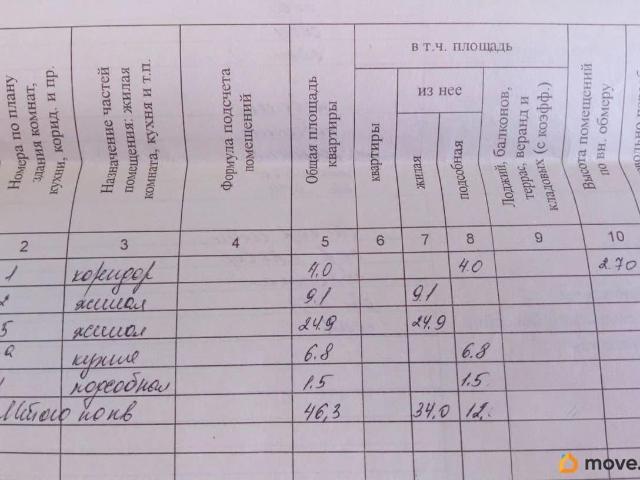 Номера по плану здания комнат, кухни, корид. и пр.
Назначение частей помещения: жилая комната, кухня и т.п.
Формула подсчета помещений
Общая площадь квартиры
в т.ч. площадь
квартиры
из нее
жилая
подсобная
Лоджий, балконов, террас, веранд и кладовых (с коэфф.)
Высота помещений по вн. обмеру
2 3 4 5 6 7 8 9 10
1 коридор 4.0 4.0 2.70
2 жилая 9.1 9.1
жилая 24.9 24.9
кухня 6.8 6.8
подсобная 1.5 1.5
Итого по кв 46,3 34.0 12.
move.